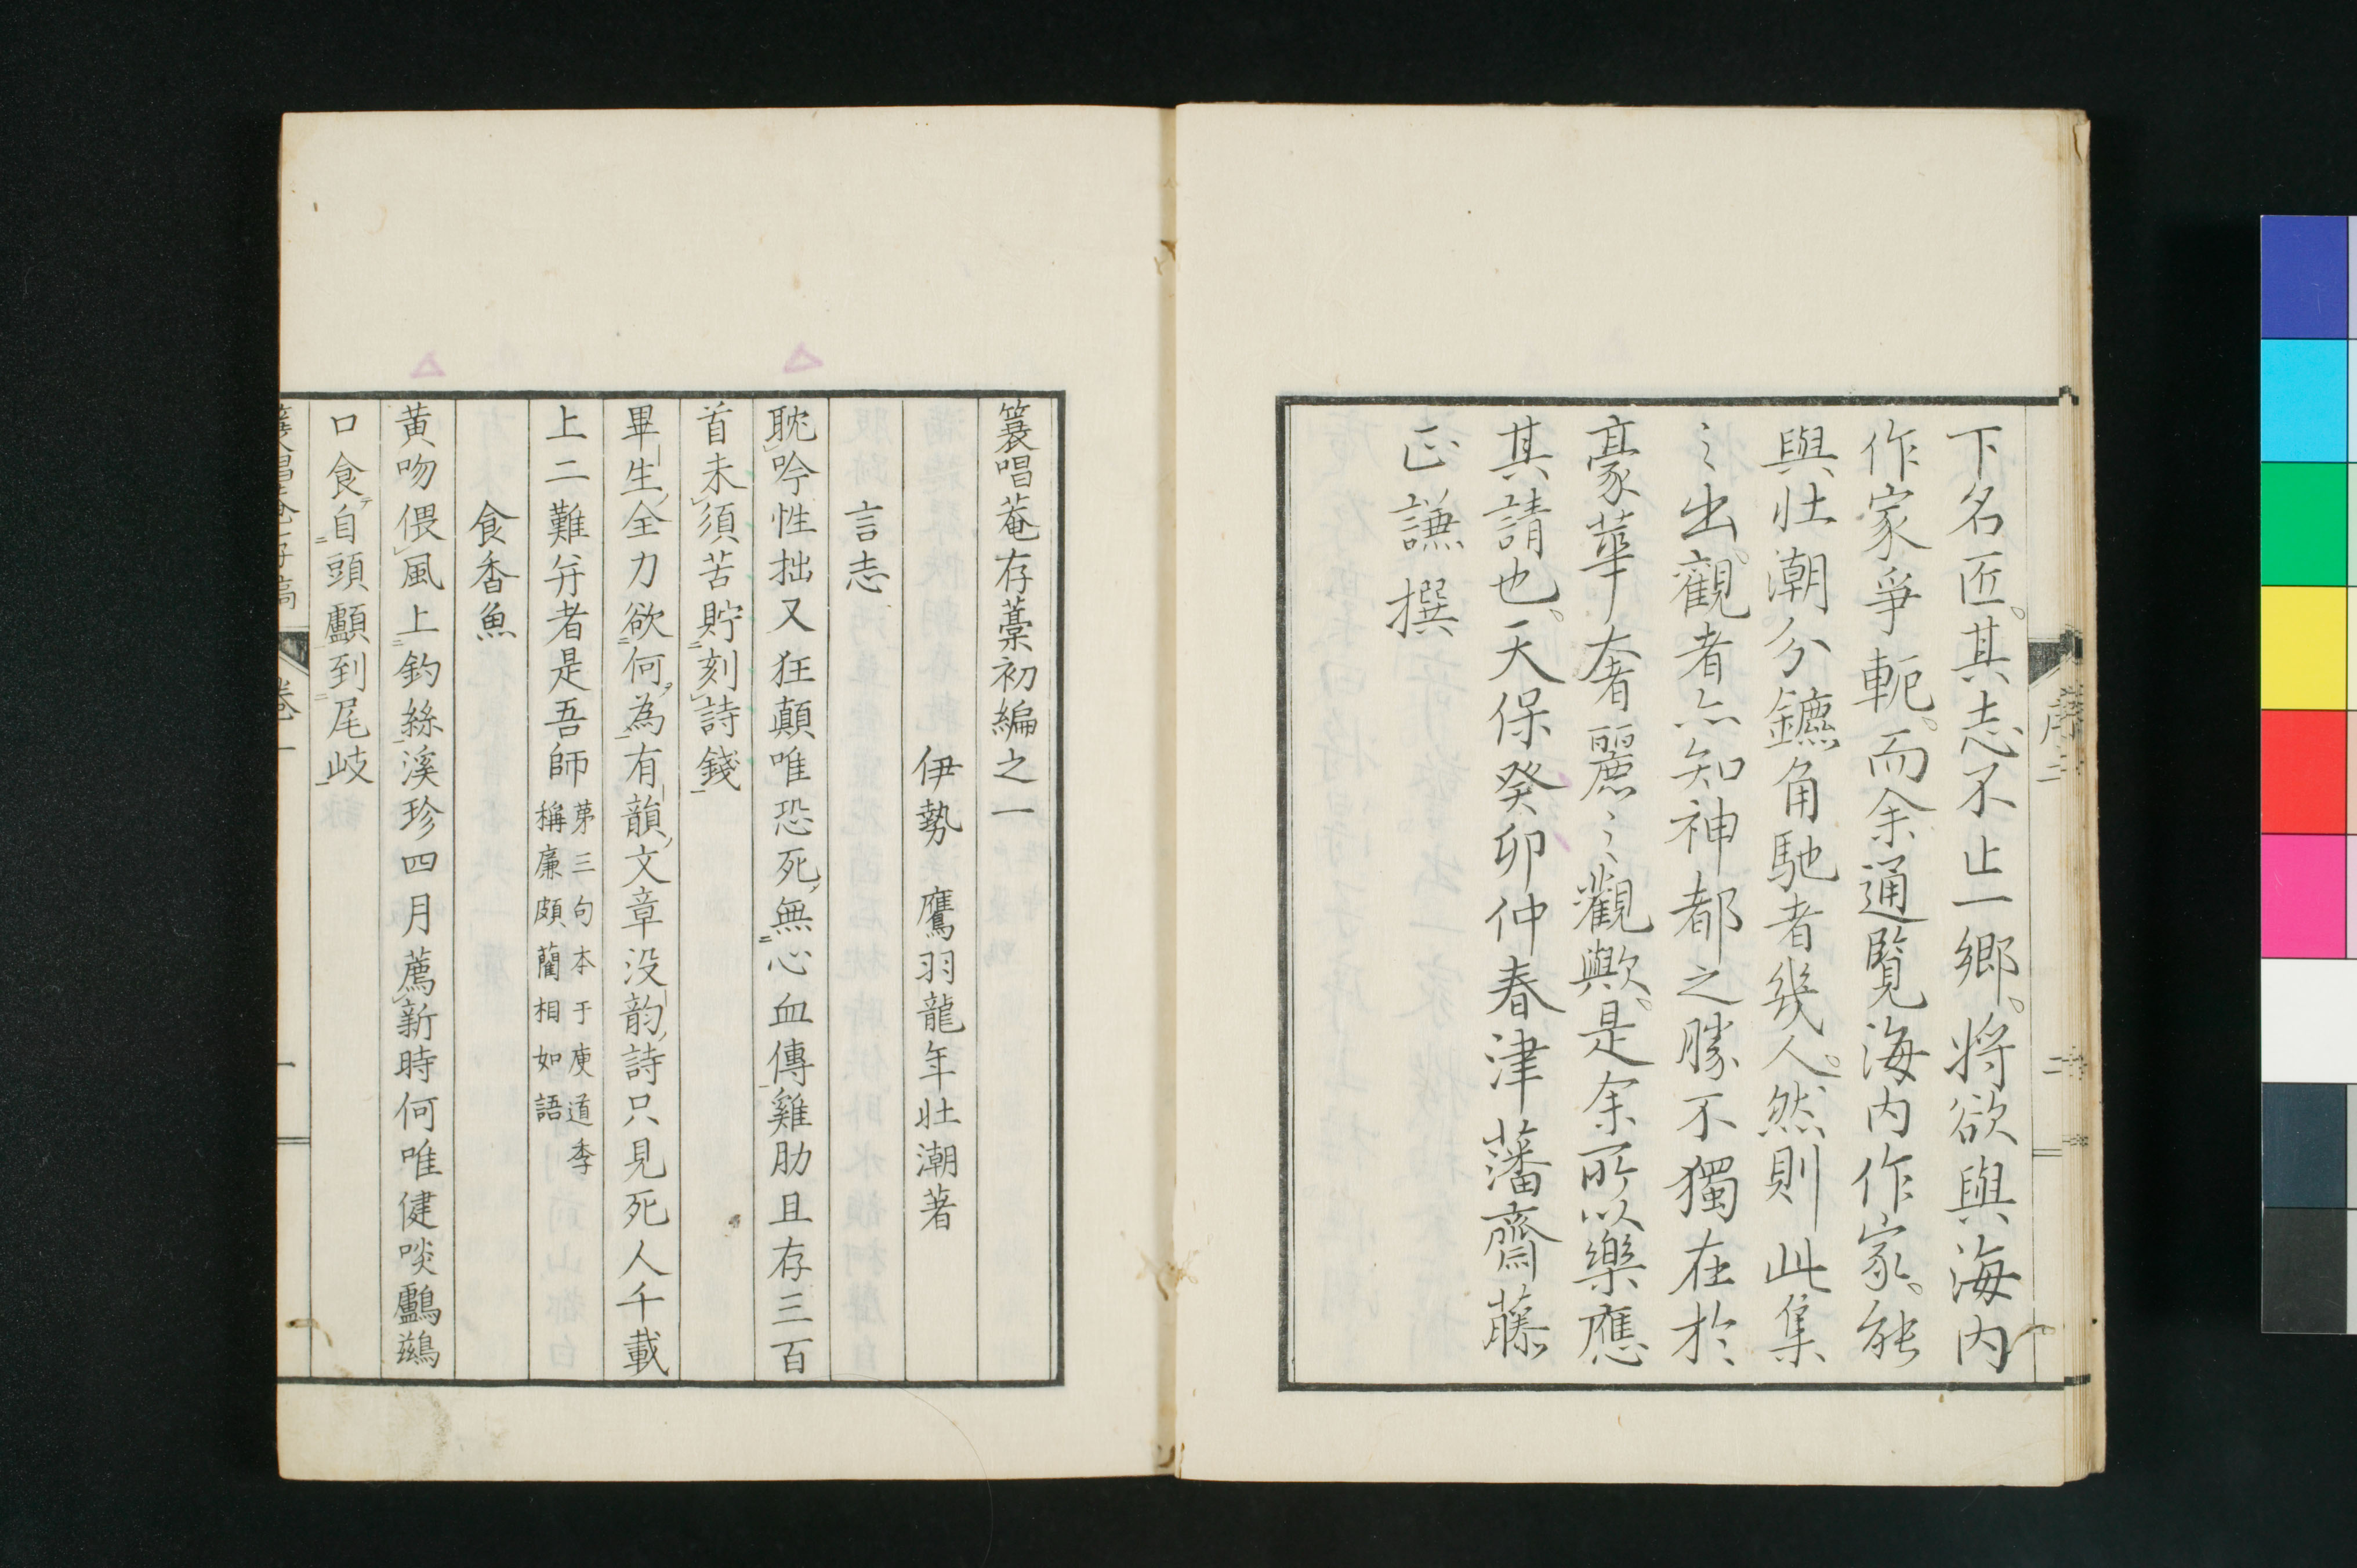 下名匠。其志不止一鄉。将欲與海内
作家爭軛。而余通覧海内作家。能
與壮潮分鑣角馳者幾人。然則此集
〻出。觀者亦知神都之勝不獨在於
豪華奢麗〻觀歟。是余所以樂應
其請也。天保癸卯仲春津藩齋藤
正謙撰
簑唱菴存藁初編之一
伊勢 鷹羽龍年壮潮著
言志
耽吟性拙又狂顛唯恐死無心血傳雞肋且存三百
首未須苦貯刻詩錢
畢生全力欲何為有韻文章没韵詩只見死人千載
上二難并者是吾師
苐三句本于庾道季
稱廉頗藺相如語
食香魚
黄吻偎風上釣絲溪珍四月薦新時何唯健啖鸕鷀
口食自頭顱到尾岐
卷一
一
序
二